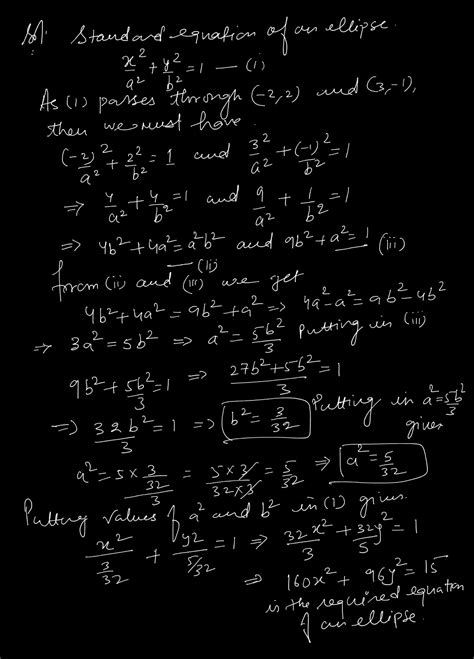 Sol. Standard equation of an ellipse.
x²/a² + y²/b² = 1 — (i)
As (1) passes through (-2,2) and (3,-1),
then we must have.
(-2)²/a² + 2²/b² = 1 and 3²/a² + (-1)²/b² = 1
⇒ 4/a² + 4/b² = 1 and 9/a² + 1/b² = 1
⇒ 4b² + 4a² = a²b² and 9b² + a² = 1 (iii)
— (ii)
from (ii) and (iii) we get
4b² + 4a² = 9b² + a² ⇒ 4a² - a² = 9b² - 4b²
⇒ 3a² = 5b² ⇒ a² = 5b²/3 putting in (iii)
9b² + 5b²/3 = 1 ⇒ (27b² + 5b²)/3 = 1
⇒ 32b²/3 = 1 ⇒ b² = 3/32 Putting in a² = 5b²/3 gives
a² = 5 × 3/32 / 3 = 5×3/32×3 = 5/32 ⇒ a² = 5/32
Putting values of a² and b² in (1) gives.
x²/(3/32) + y²/(5/32) = 1 ⇒ 32x²/3 + 32y²/5 = 1
⇒ 160x² + 96y² = 15
is the required equation
of an ellipse.